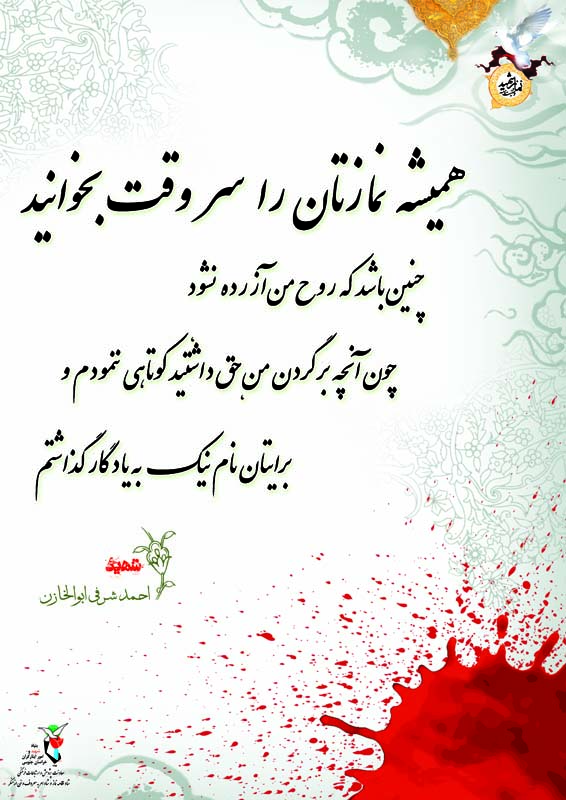 همیشه نمازتان را سر وقت بخوانید
چنین باشد که روح من آزرده نشود
چون آنچه بر گردن من حق داشتید کوتاهی ننمودم و
برایتان نام نیک به یادگار گذاشتم
شهید
احمد شرفی ابوالخازن
بنیاد